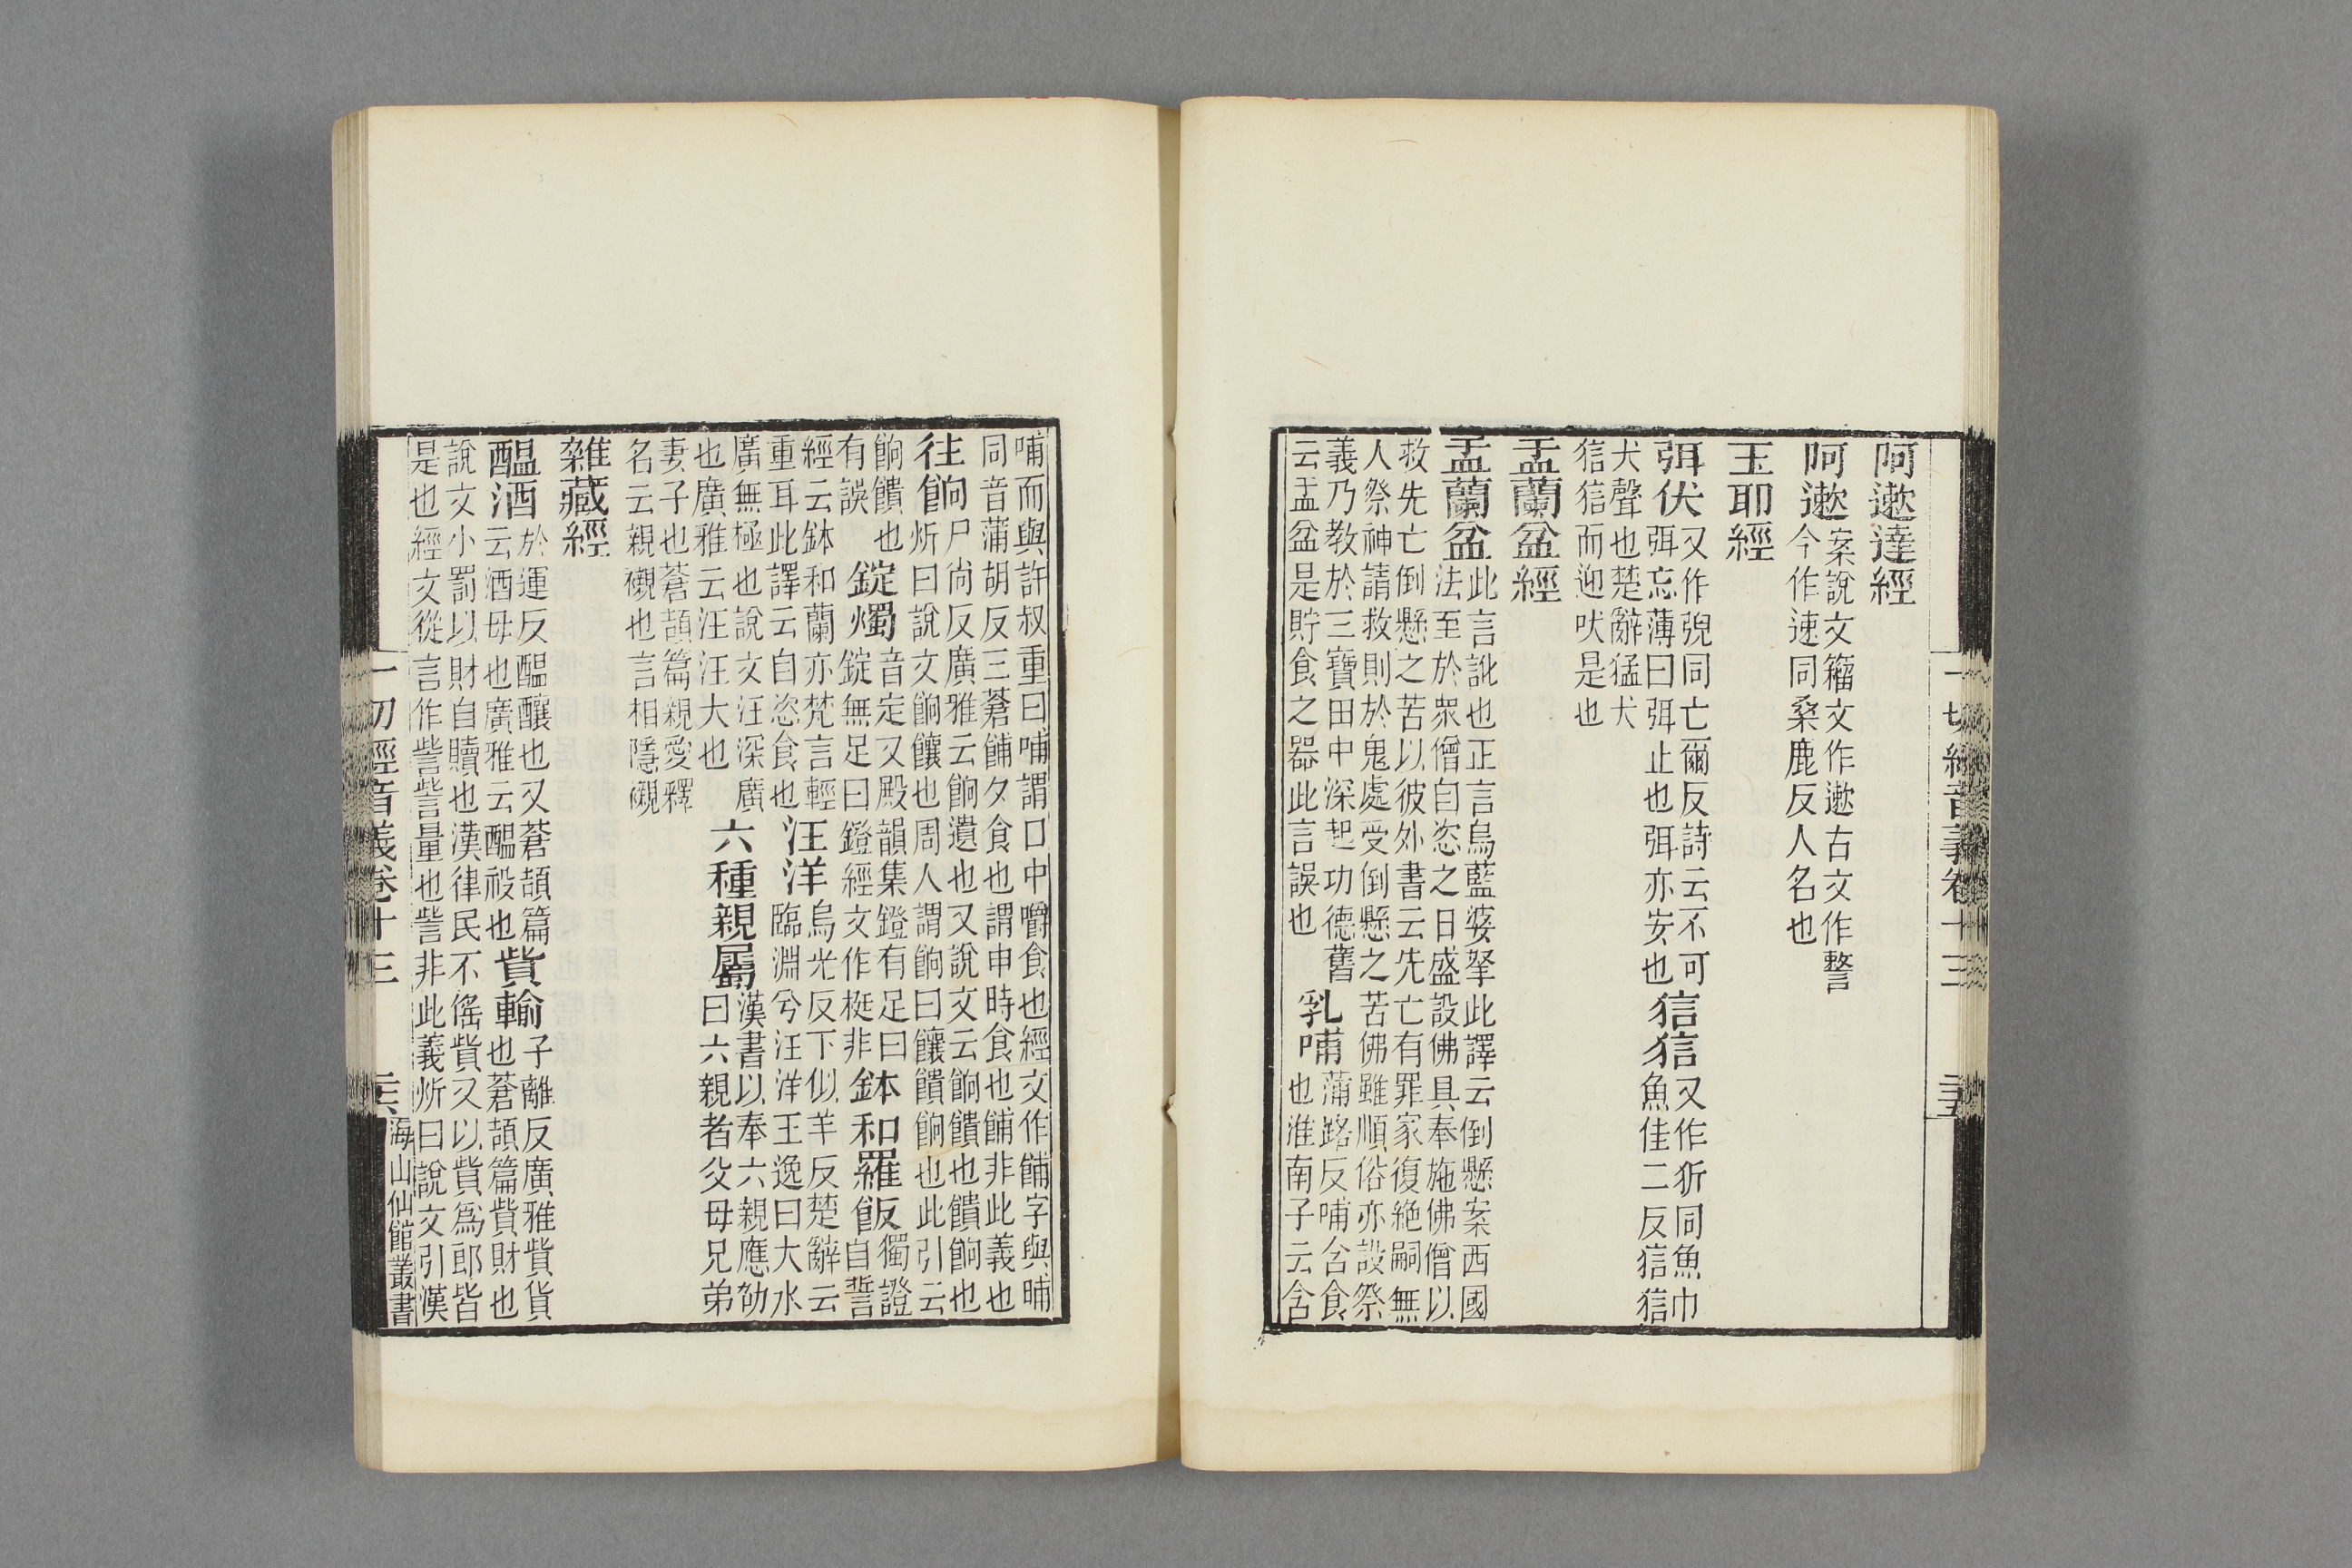 一切經音義卷十三
阿遬達經
阿遬 案說文籀文作遬古文作𧫷今作速同桑鹿反人名也
玉耶經
弭伏 又作𧦧同亡爾反詩云不可弭忘薄曰弭止也弭亦安也 狺狺 又作㹞同魚巾魚佳二反狺狺
犬聲也楚辭猛犬狺狺而迎吠是也
盂蘭盆經
盂蘭盆 此言訛也正言烏藍婆拏此譯云倒懸案西國法至於眾僧自恣之日盛設佛具奉施佛僧以
救先亡倒懸之苦以彼外書云先亡有罪家復絶嗣無人祭神請救則於鬼處受倒懸之苦佛雖順俗亦設祭
義乃教於三寶田中深起功德舊云盂盆是貯食之器此言誤也 乳哺 蒲路反哺含食也淮南子云含
哺而與許叔重曰哺謂口中嚼食也經文作餔字與晡同音蒲胡反三蒼餔夕食也謂申時食也餔非此義也
往餉 尸尚反廣雅云餉遺也又說文云餉饋也饋餉也炘曰說文餉饟也周人謂餉曰饟饋餉也此引云
餉饋也有誤 錠燭 音定又殿韻集鐙有足曰錠無足曰鐙經文作梃非 鉢和羅飯 獨證自誓
經云鉢和蘭亦梵言輕重耳此譯云自恣食也 汪洋 烏光反下似羊反楚辭云臨淵兮汪洋王逸曰大水
廣無極也說文汪深廣也廣雅云汪汪大也 六種親屬 漢書以奉六親應劭曰六親者父母兄弟
妻子也蒼頡篇親愛釋名云親襯也言相隱襯
雜藏經
醖酒 於運反醖釀也又蒼頡篇云酒母也廣雅云醖酘也 貲輸 子離反廣雅貲貨也蒼頡篇貲財也
說文小罰以財自贖也漢律民不傜貲又以貲爲郎皆是也經文從言作訾訾量也訾非此義炘曰說文引漢
一切經音義卷十三
海山仙館叢書